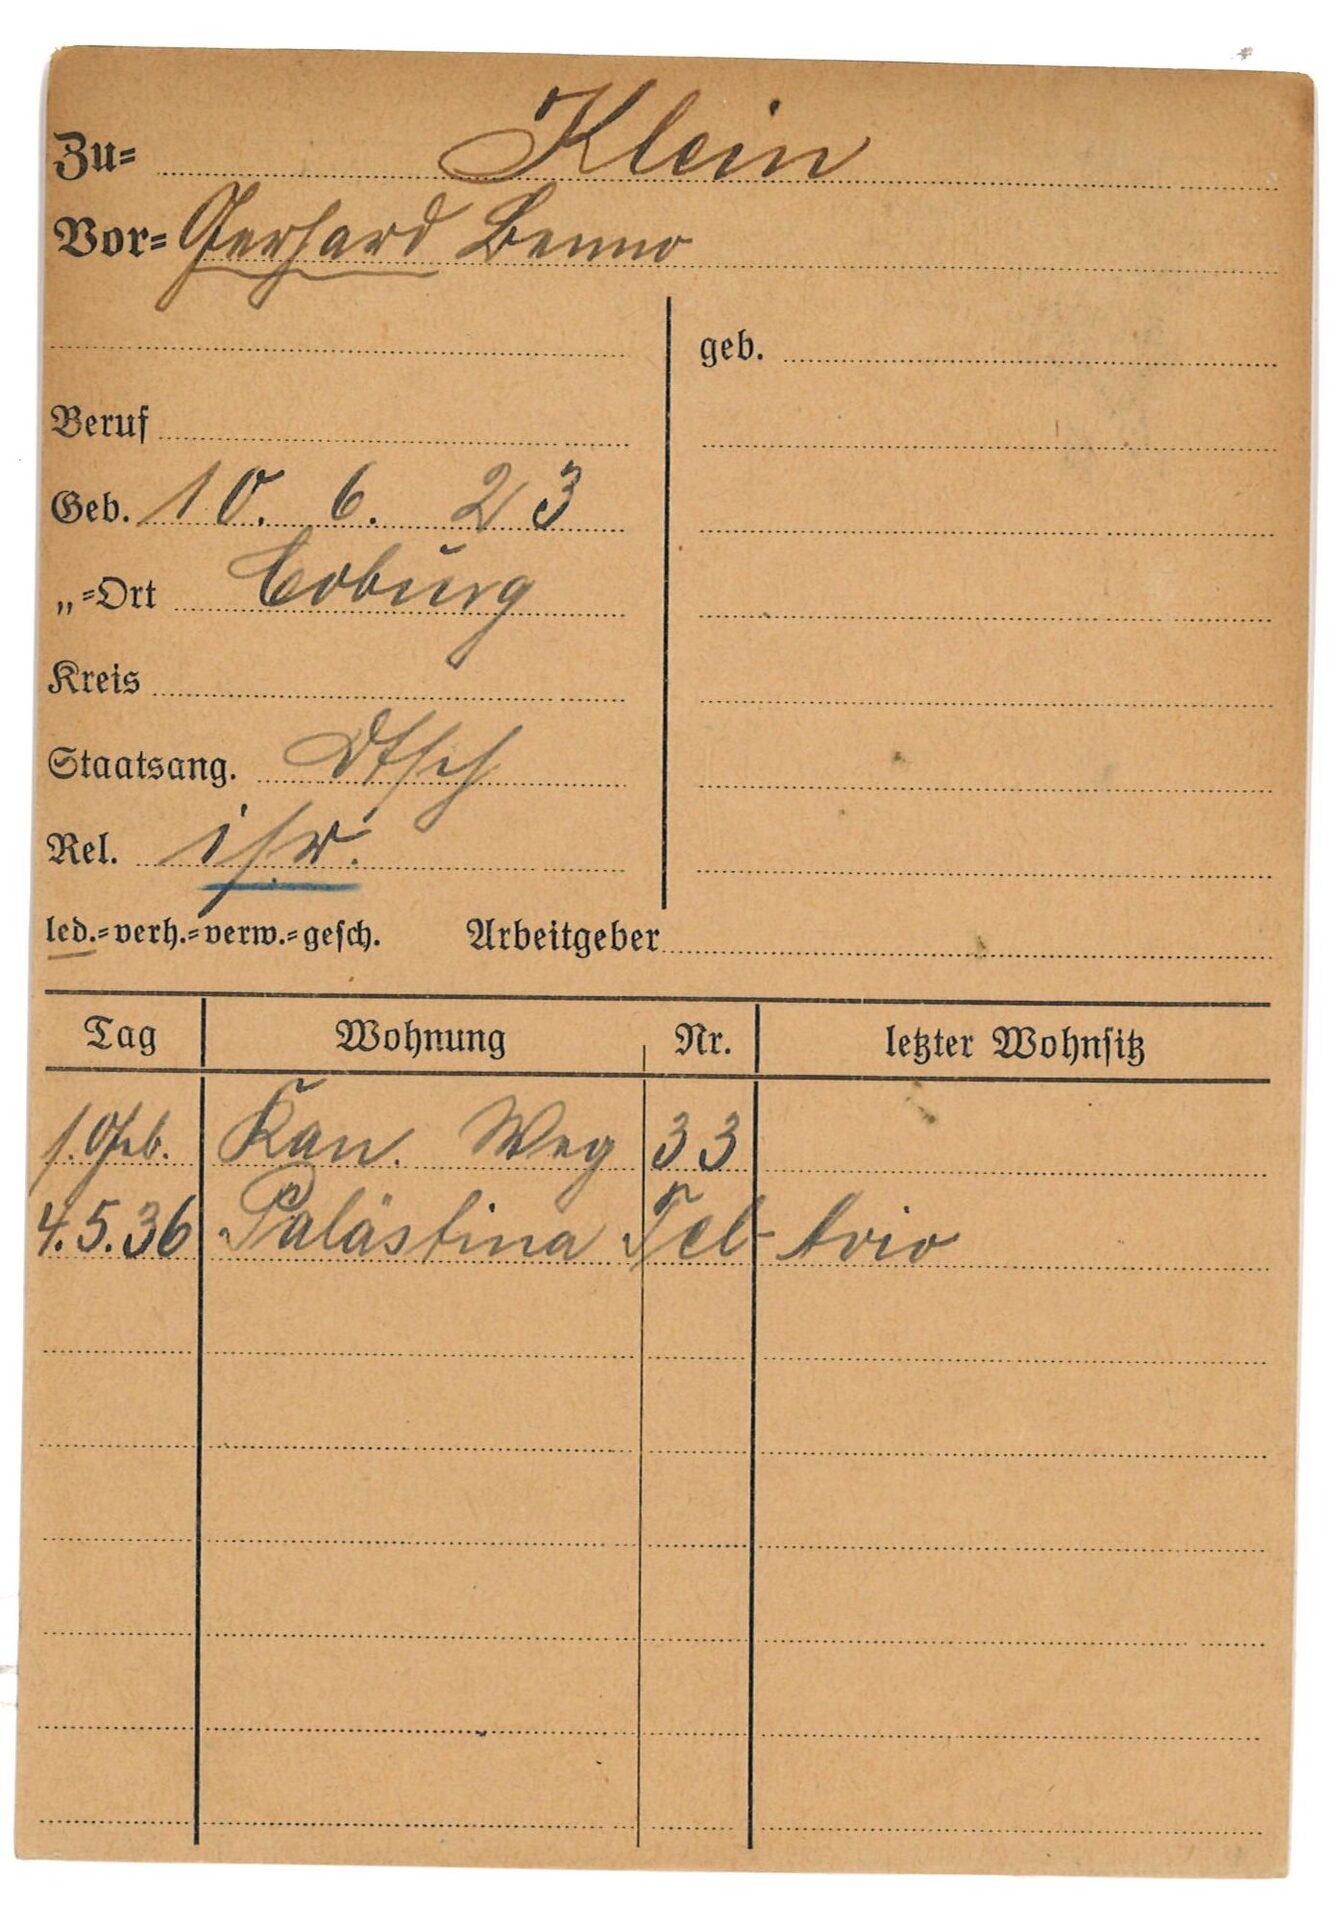 Zu= Klein
Vor= Gerhard Benno
geb.
Beruf
Geb. 10. 6. 23
„=Ort Coburg
Kreis
Staatsang. Dtsch
Rel. isr.
led.=verh.=verw.=gesch. Arbeitgeber
Tag Wohnung Nr. letzter Wohnsitz
s. Geb. Kan. Weg 33
4.5.36 Palästina Tel-Aviv